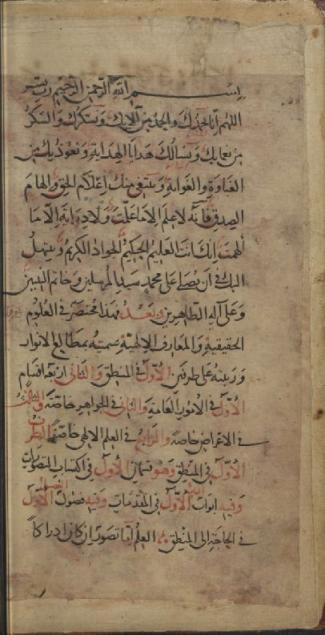 بسم الله الرحمن الرحيم رب يسر
اللهم انا نحمدك والحمد من آلائك ونشكرك والشكر
من نعمائك ونسألك هدايا الهداية ونعوذ بك من
الغباوة والغواية ونبتغي منك اعلام الحق والهام
الصدق فانه لا علم الا ما علمت ولا دراية الا ما
الهمت انك انت العليم الحكيم الجواد الكريم ونبتهل
اليك في ان تصلي على محمد سيد المرسلين وخاتم النبيين
وعلى آله الطاهرين وبعد فهذا مختصر في العلوم
الحقيقية والمعارف الالهية سميته بمطالع الانوار
ورتبته على طرفين الاول في المنطق والثاني اربعة اقسام
الاول في الامور العامة والثاني في الجواهر خاصة والثالث
في الاعراض خاصة والرابع في العلم الالهي خاصة الطرف
الاول في المنطق وهو قسمان الاول في اكتساب التصورات
وفيه ابواب الاول في المقدمات وفيه فصول الاول
في الحاجة الى المنطق العلم اما تصور ان كان ادراكا